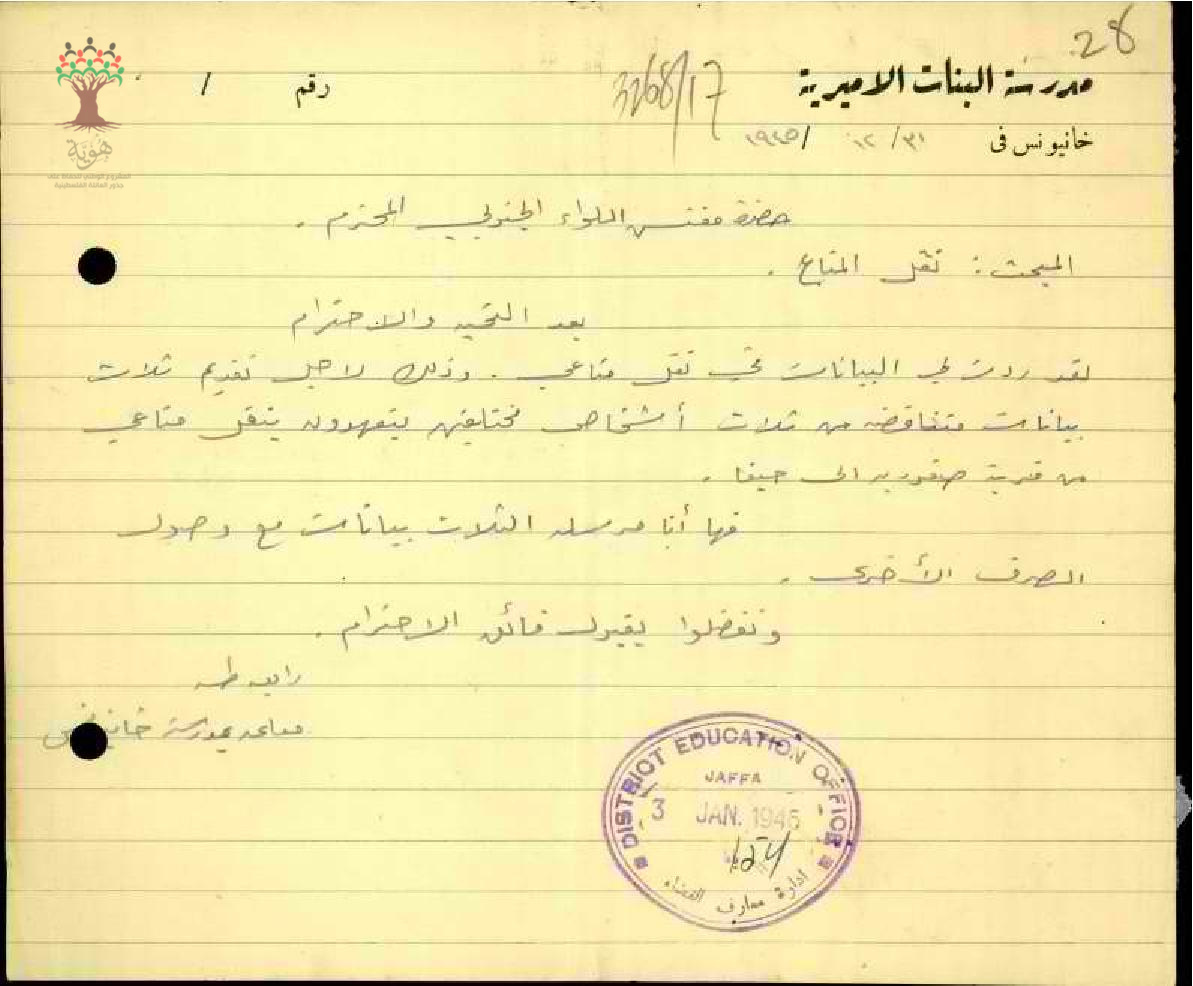 28
مدرسة البنات الاميرية
3268/17
رقم /
خانيونس فى ٣١/ ١٢ /١٩٤٥
هَوِيَّة
المشروع الوطني للحفاظ على
جذور العائلة الفلسطينية
حضرة مفتش اللواء الجنوبي المحترم .
المبحث : نقل المتاع .
بعد التحيه والاحترام
لقد ردت لي البيانات في نقل متاعي . وذلك لاجل تقديم ثلاث
بيانات متناقضه من ثلاث أشخاص مختلفين يتعهدون بنقل متاعي
من قرية صفوريه الى حيفا .
فها أنا مرسله الثلاث بيانات مع وصول
الصرف الأخرى .
وتفضلوا بقبول فائق الاحترام .
رابعه طه
بمدرسة
DISTRICT EDUCATION OFFICE
JAFFA
3 JAN. 1946
ادارة معارف القضاء